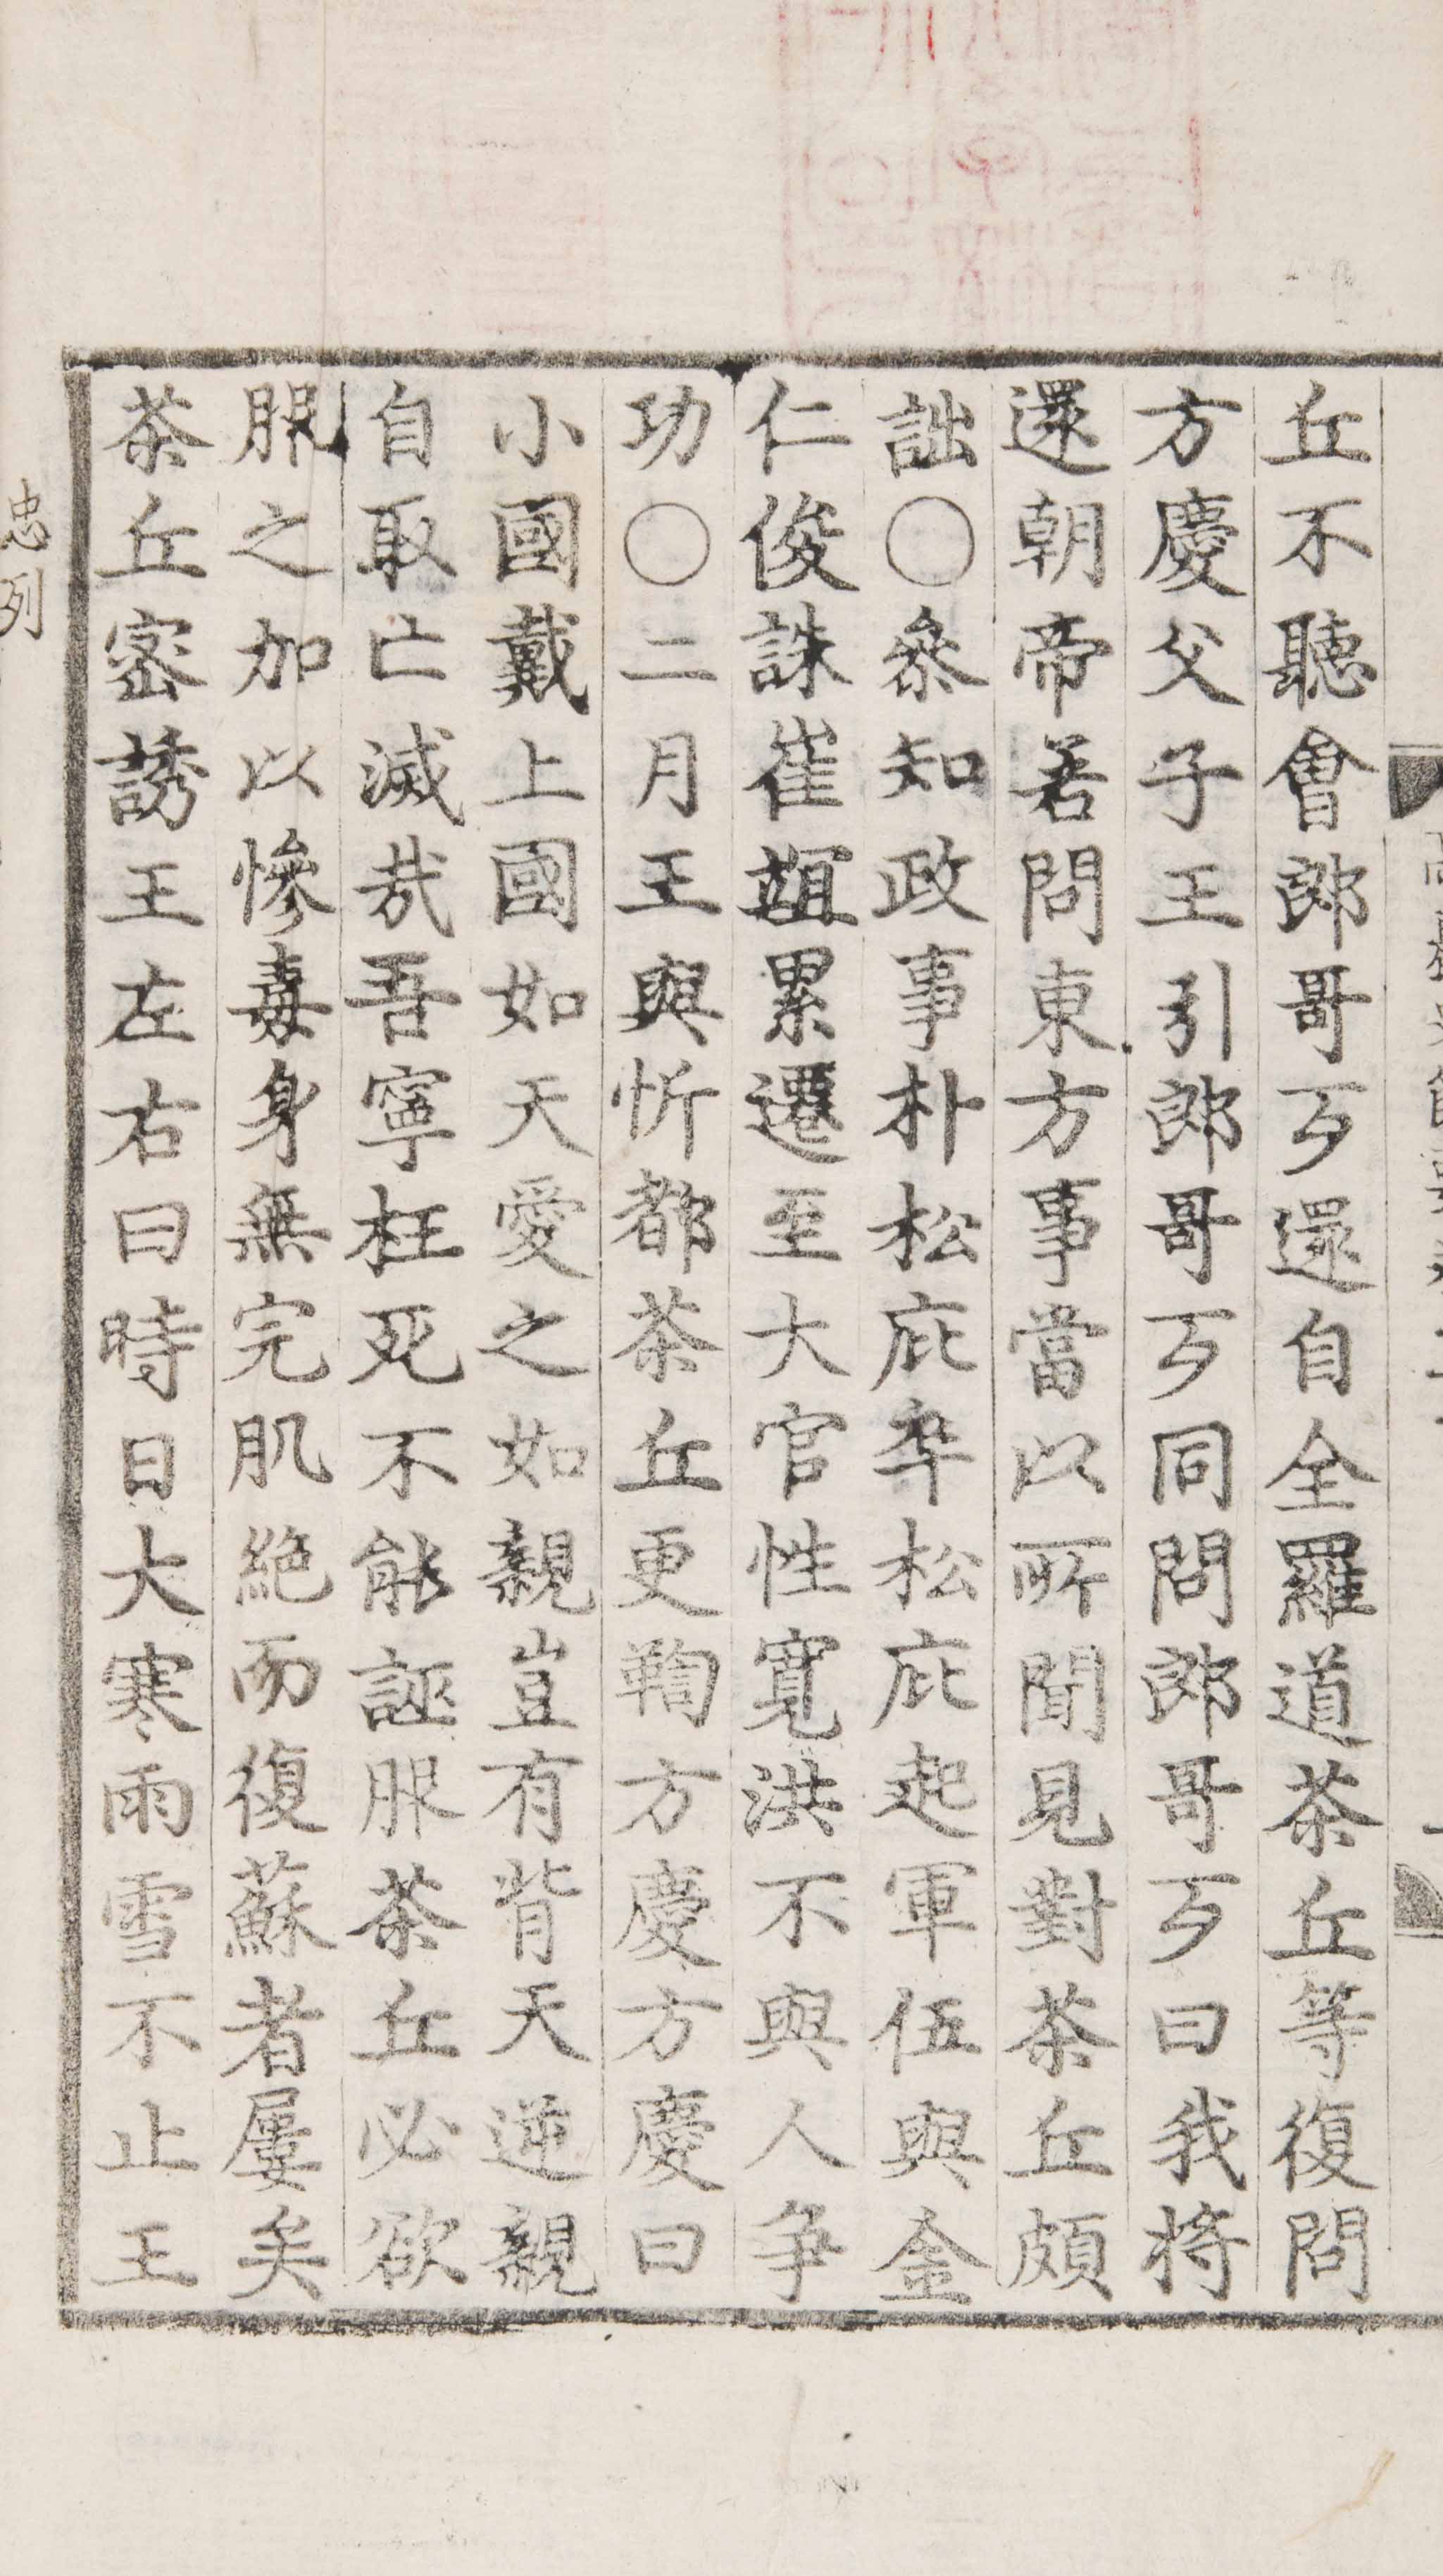 丘不聽會郎哥歹還自全羅道茶丘等復問
方慶父子王引郎哥歹同問郎哥歹曰我將
還朝帝若問東方事當以所聞見對茶丘頗
詘○叅知政事朴松庇卒松庇起軍伍與金
仁俊誅崔竩累遷至大官性寬洪不與人爭
功○二月王與忻都茶丘更鞫方慶方慶曰
小國戴上國如天愛之如親豈有背天逆親
自取亡滅㢤吾寧枉死不能誣服茶丘必欲
服之加以慘毒身無完肌絶而復蘇者屢矣
茶丘密誘王左右曰時日大寒雨雪不止王
忠列